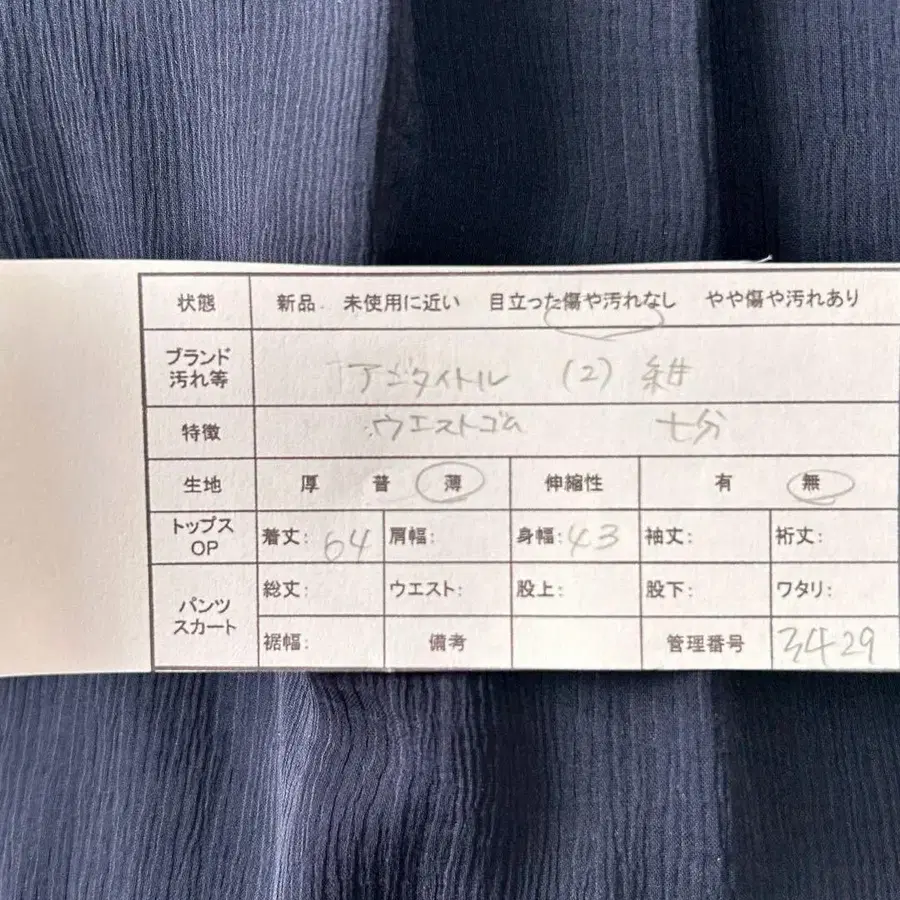 状態 新品 未使用に近い 目立った傷や汚れなし やや傷や汚れあり
ブランド 汚れ等 アンタイトル (2) 紺
特徴 ウエストゴム 七分
生地 厚 普 薄 伸縮性 有 無
トップス OP 着丈: 64 肩幅: 身幅: 43 袖丈: 裄丈:
パンツ スカート 総丈: ウエスト: 股上: 股下: ワタリ:
裾幅: 備考 管理番号 3429